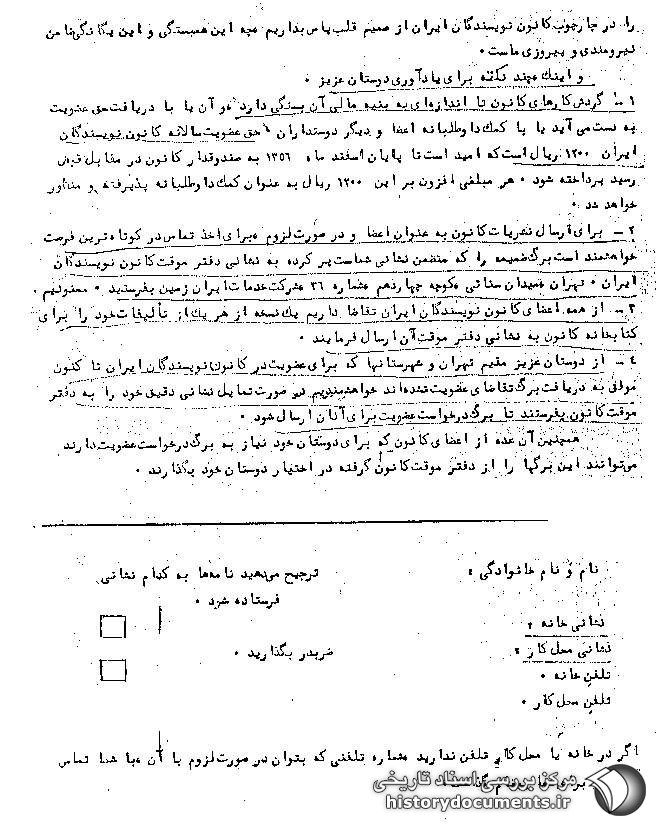 را در چارچوب کانون نویسندگان ایران از صمیم قلب پاس بداریم چه این همبستگی و این یگانگی ضامن
نیرومندی و پیروزی ماست .
و اینك چند نکته برای یادآوری دوستان عزیز .
۱ – گردش کارهای کانون تا اندازه‌ای به بنیه مالی آن بستگی دارد و آن یا با دریافت حق عضویت
به دست می آید یا با کمك داوطلبانه اعضا و دیگر دوستداران . حق عضویت سالانه کانون نویسندگان
ایران ۱۲۰۰ ریال است که امید است تا پایان اسفند ماه ۱۳۵۶ به صندوقدار کانون در مقابل قبض
رسید پرداخته شود . هر مبلغی افزون بر این ۱۲۰۰ ریال به عنوان کمك داوطلبانه پذیرفته و منظور
خواهد شد .
۲ – برای ارسال نشریات کانون به عنوان اعضا و در صورت لزوم برای اخذ تماس در کوتاه ترین فرصت
خواهشمند است برگ ضمیمه را که متضمن نشانی شماست پر کرده به نشانی دفتر موقت کانون نویسندگان
ایران . تهران میدان سنائی کوچه چهاردهم شماره ۲۶ شرکت خدمات ایران زمین بفرستید .
۳ – از همه اعضای کانون نویسندگان ایران تقاضا داریم یك نسخه از هر یك از تألیفات خود را برای
کتابخانه کانون به نشانی دفتر موقت آن ارسال فرمایند .
۴ – از دوستان عزیز مقیم تهران و شهرستانها که برای عضویت در کانون نویسندگان ایران تا کنون
موفق به دریافت برگ تقاضای عضویت نشده اند خواهشمندیم در صورت تمایل نشانی دقیق خود را به دفتر
موقت کانون بفرستند تا برگ درخواست عضویت برای آنان ارسال شود .
همچنین آن عده از اعضای کانون که برای دوستان خود نیاز به برگ درخواست عضویت دارند
می‌توانند این برگها را از دفتر موقت کانون گرفته در اختیار دوستان خود بگذارند .
نام و نام خانوادگی :
ترجیح می‌دهید نامه‌ها به کدام نشانی
فرستاده شود .
نشانی خانه :
نشانی محل کار :
ضربدر بگذارید .
تلفن خانه .
تلفن محل کار .
اگر در خانه یا محل کار تلفن ندارید شماره تلفنی که بتوان در صورت لزوم با آن با شما تماس
مرکز بررسی اسناد تاریخی
historydocuments.ir